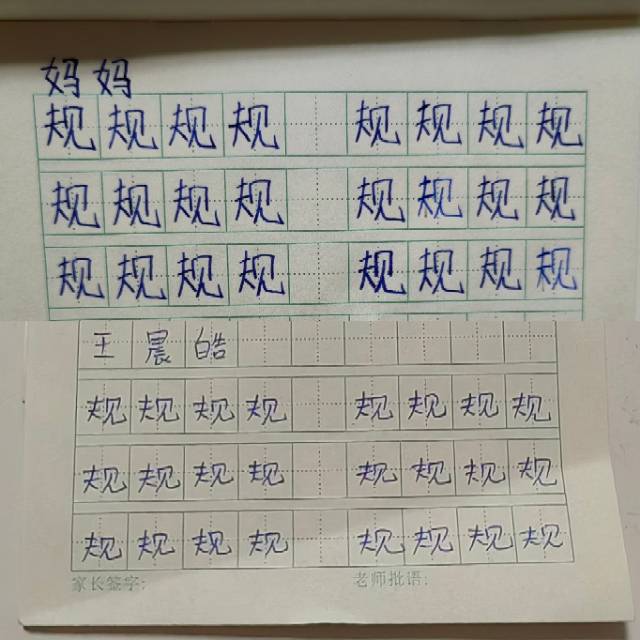 妈妈
规规规规 规规规规
规规规规 规规规规
规规规规 规规规规
王晨皓
规规规规 规规规规
规规规规 规规规规
规规规规 规规规规
家长签字: 老师批语: